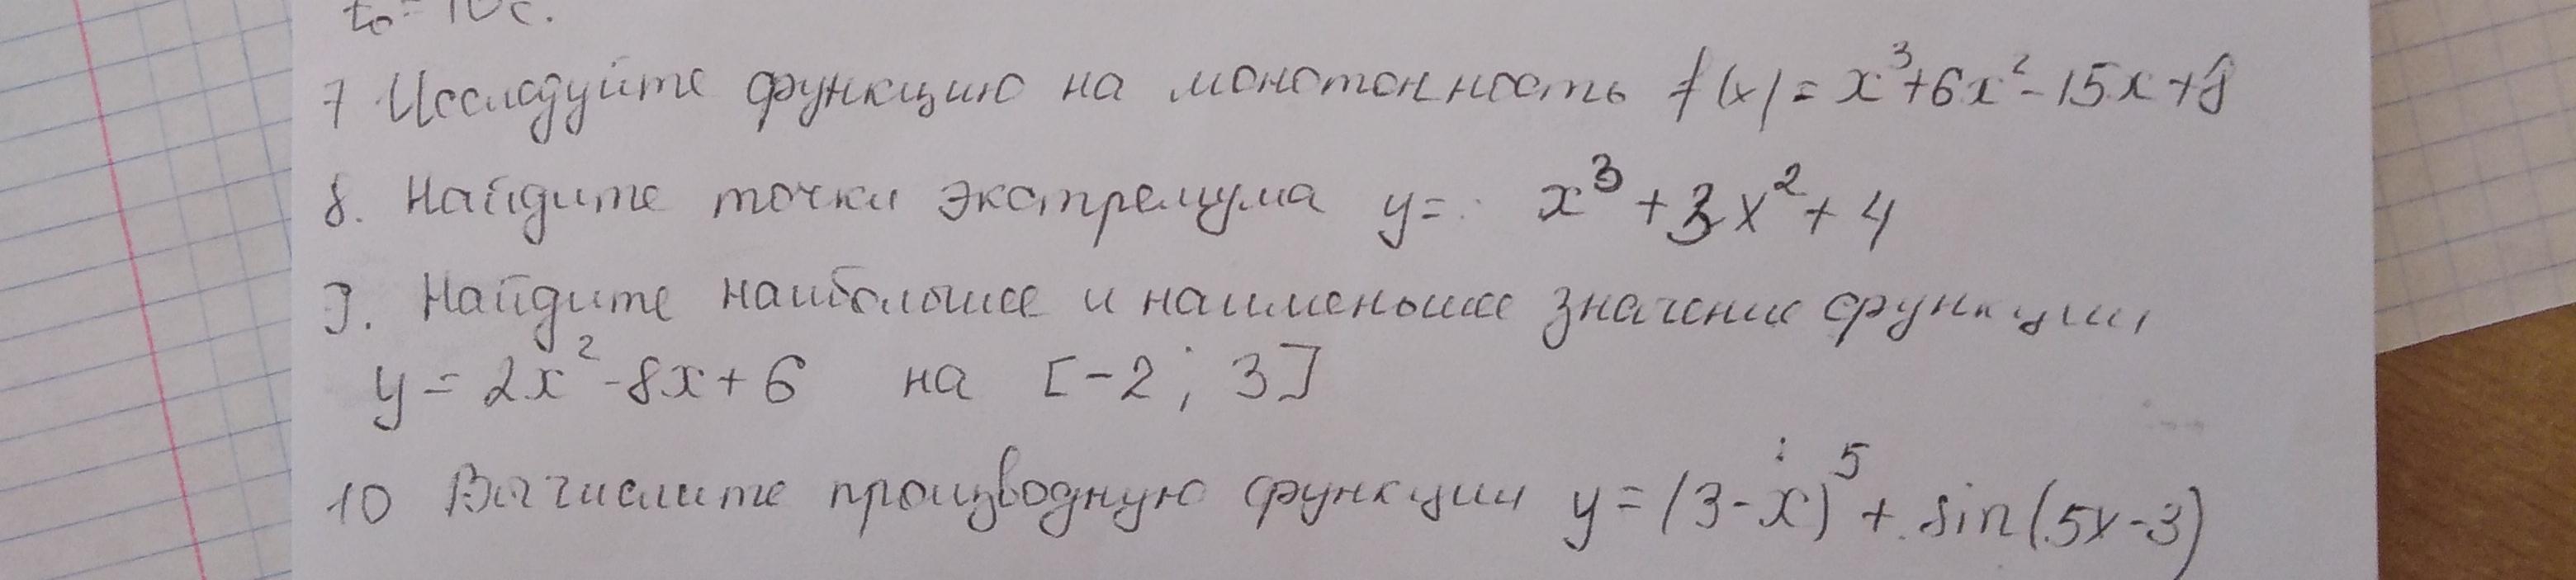 t₀ = 10c.
7 Исследуйте функцию на монотонность f(x) = x³+6x²-15x+8
8. Найдите точки экстремума y= x³+3x²+4
9. Найдите наибольшее и наименьшее значение функции,
y = 2x²-8x+6 на [-2; 3]
10 Вычислите производную функции y=(3-x)⁵+sin(5x-3)